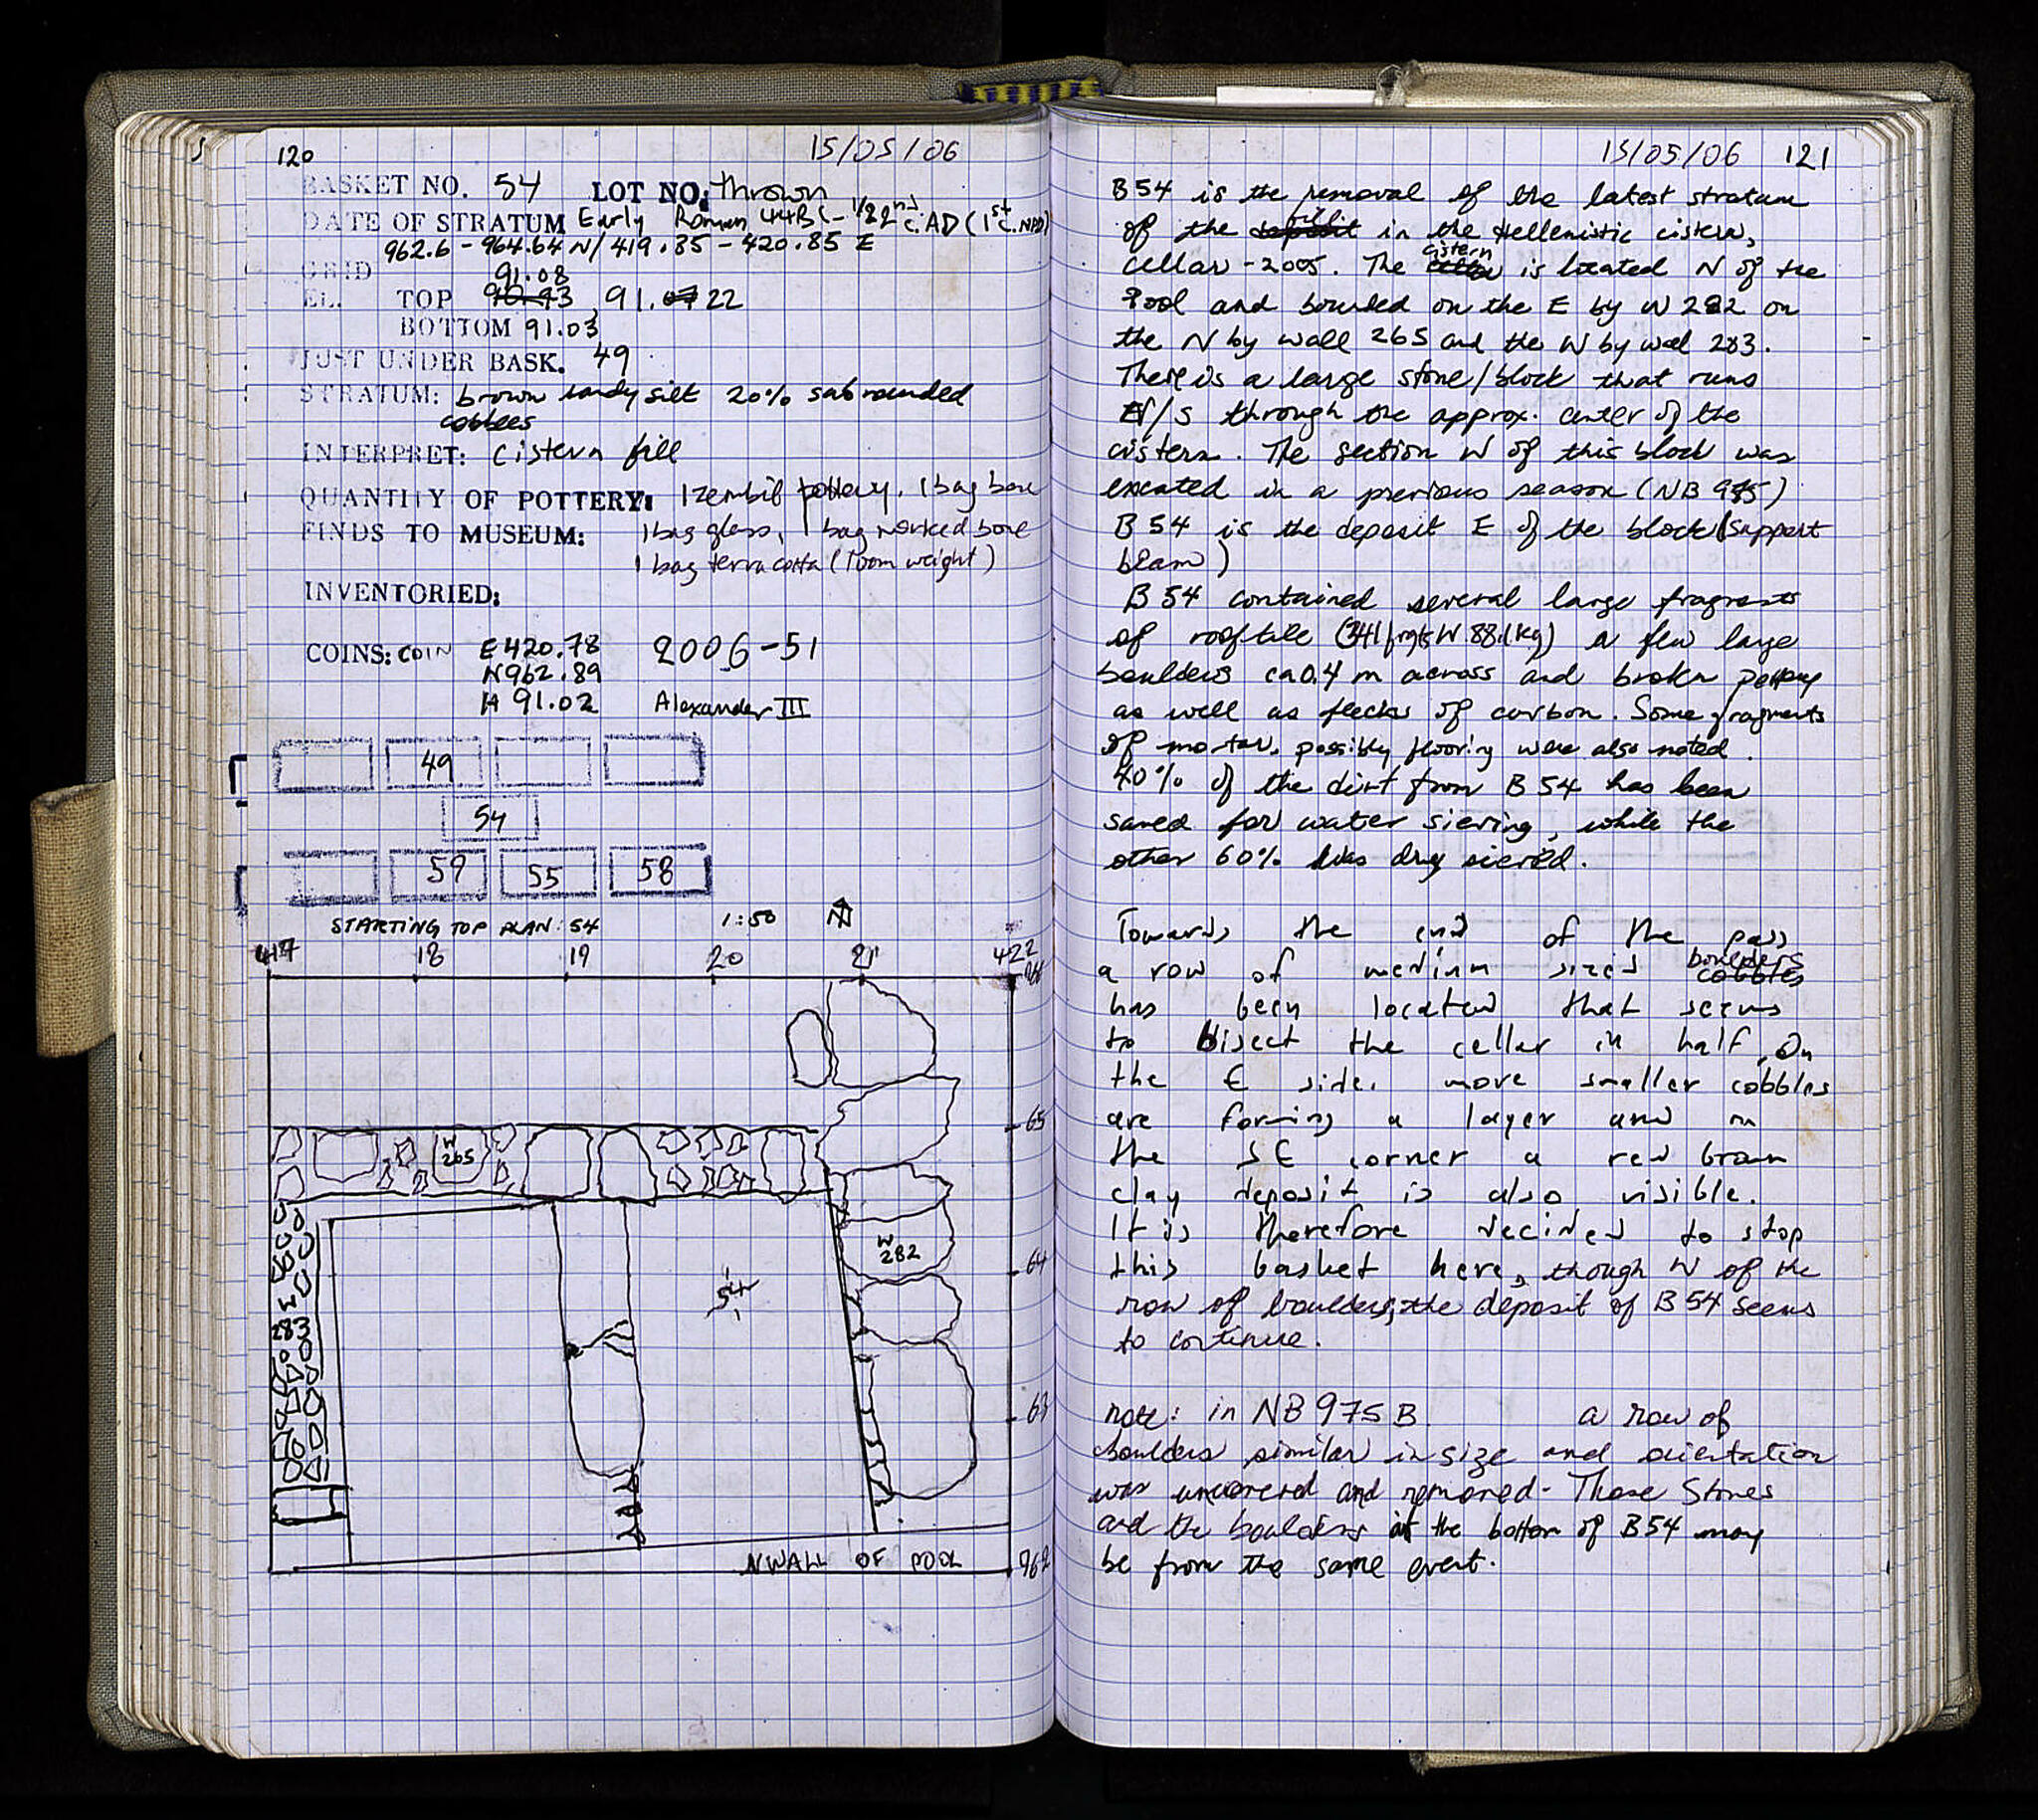 120
15/05/06
BASKET NO. 54 LOT NO: thrown
DATE OF STRATUM Early Roman 44BC - 1/2 2nd c. AD (1st c. NPD)
962.6 - 964.64 N/ 419.35 - 420.85 E
GRID 91.08
EL. TOP 90.93, 91.07 22
BOTTOM 91.03
JUST UNDER BASK. 49
STRATUM: brown sandy silt 20% subrounded
cobbles
INTERPRET: cistern fill
QUANTITY OF POTTERY: 1 zembil pottery. 1 bag bone
FINDS TO MUSEUM: 1 bag glass, 1 bag worked bone
1 bag terracotta (loom weight)
INVENTORIED:
COINS: COIN E420.78 2006-51
N962.89
H 91.02 Alexander III
49
54
59 55 58
STARTING TOP PLAN: 54 1:50 N
417 18 19 20 21 422
65
W
265
W
282
64
54
W
283
63
N WALL OF POOL
962
15/05/06 121
B54 is the removal of the latest stratum
of the deposit fill in the Hellenistic cistern,
cellar - 2005. The cistern is located N of the
Pool and bounded on the E by W 282 on
the N by wall 265 and the W by wall 283.
There is a large stone/block that runs
N/S through the approx. center of the
cistern. The section W of this block was
excated in a previous season (NB 975)
B54 is the deposit E of the block (support
beam)
B54 contained several large fragments
of rooftile (341 frgts W. 88.1kg) a few large
boulders ca 0.4 m across and broken pottery
as well as flecks of carbon. Some fragments
of mortar, possibly flooring were also noted.
40% of the dirt from B54 has been
saved for water sieving, while the
other 60% was dry sieved.
Towards the end of the pass
a row of medium sized cobbles boulders
has been located that seems
to bisect the cellar in half. On
the E side, more smaller cobbles
are forming a layer and in
the SE corner a red brown
clay deposit is also visible.
It is therefore decided to stop
this basket here, though W of the
row of boulders, the deposit of B54 seems
to continue.
note: in NB 975 B a row of
boulders similar in size and orientation
was uncovered and removed - Those stones
and the boulders at the bottom of B54 may
be from the same event.